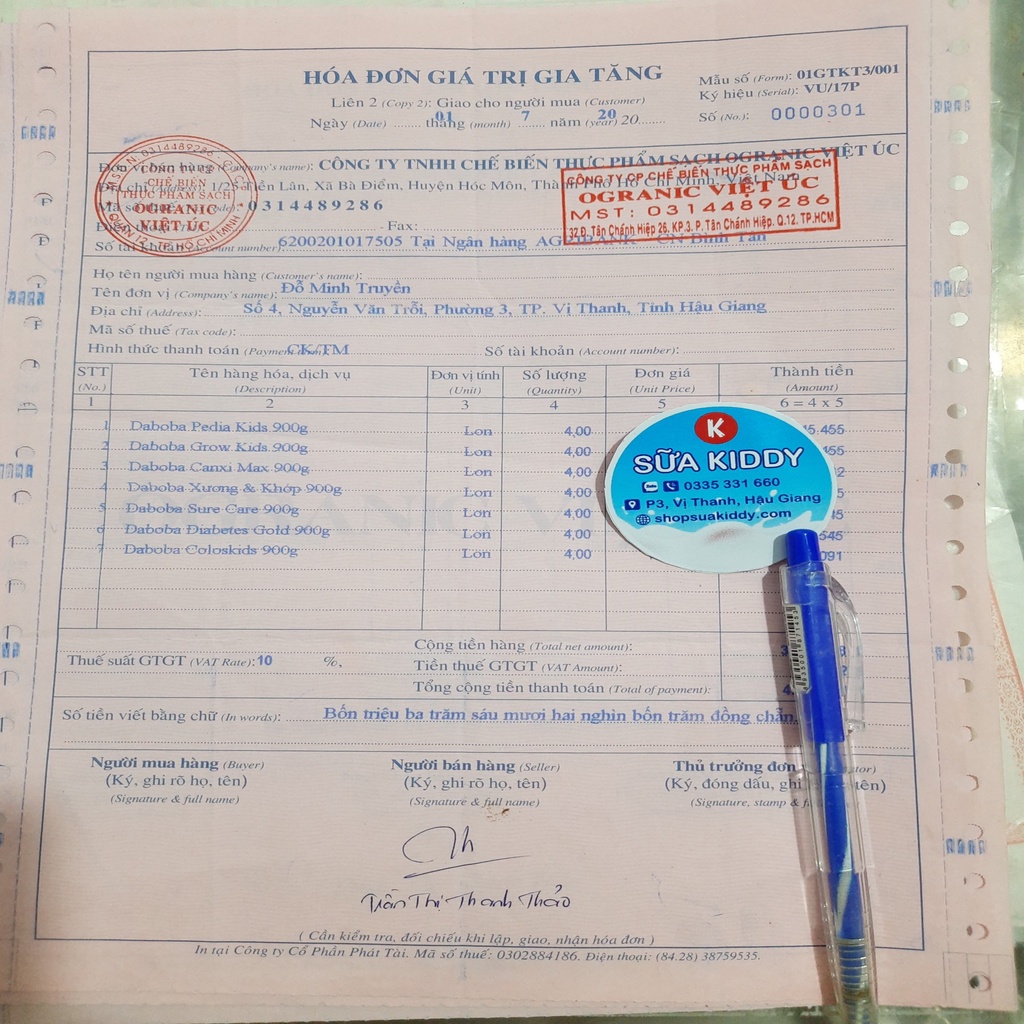 HÓA ĐƠN GIÁ TRỊ GIA TĂNG
Liên 2 (Copy 2): Giao cho người mua (Customer)
Ngày (Date) 01 tháng (month) 7 năm (year) 20 20
Mẫu số (Form): 01GTKT3/001
Ký hiệu (Serial): VU/17P
Số (No.): 0000301
Đơn vị bán hàng (Company's name): CÔNG TY TNHH CHẾ BIẾN THỰC PHẨM SẠCH OGRANIC VIỆT ÚC
Địa chỉ (Address): 1/25 Tiền Lân, Xã Bà Điểm, Huyện Hóc Môn, Thành Phố Hồ Chí Minh, Việt Nam
Mã số thuế 0314489286
Fax:
Số tài khoản (Account number): 6200201017505 Tại Ngân hàng AGRIBANK - CN Bình Tân
M.S.D.N: 0314489286
CHẾ BIẾN
THỰC PHẨM SẠCH
OGRANIC
VIỆT ÚC
TP HỒ CHÍ MINH
CÔNG TY CP CHẾ BIẾN THỰC PHẨM SẠCH
OGRANIC VIỆT ÚC
MST: 0314489286
32 Đ. Tân Chánh Hiệp 26, KP.3, P. Tân Chánh Hiệp, Q.12, TP.HCM
Họ tên người mua hàng (Customer's name):
Tên đơn vị (Company's name): Đỗ Minh Truyền
Địa chỉ (Address): Số 4, Nguyễn Văn Trỗi, Phường 3, TP. Vị Thanh, Tỉnh Hậu Giang
Mã số thuế (Tax code):
Hình thức thanh toán CK/TM Số tài khoản (Account number):
STT (No.) Tên hàng hóa, dịch vụ (Description) Đơn vị tính (Unit) Số lượng (Quantity) Đơn giá (Unit Price) Thành tiền (Amount)
1 2 3 4 5 6 = 4 x 5
1 Daboba Pedia Kids 900g Lon 4,00
2 Daboba Grow Kids 900g Lon 4,00
3 Daboba Canxi Max 900g Lon 4,00
4 Daboba Xương & Khớp 900g Lon 4,00
5 Daboba Sure Care 900g Lon 4,00
6 Daboba Diabetes Gold 900g Lon 4,00
7 Daboba Coloskids 900g Lon 4,00
K
SỮA KIDDY
0335 331 660
P3, Vị Thanh, Hậu Giang
shopsuakiddy.com
Cộng tiền hàng (Total net amount):
Thuế suất GTGT (VAT Rate): 10 %, Tiền thuế GTGT (VAT Amount):
Tổng cộng tiền thanh toán (Total of payment):
Số tiền viết bằng chữ (In words): Bốn triệu ba trăm sáu mươi hai nghìn bốn trăm đồng chẵn.
Người mua hàng (Buyer) Người bán hàng (Seller) Thủ trưởng đơn
(Ký, ghi rõ họ, tên) (Ký, ghi rõ họ, tên) (Ký, đóng dấu, ghi tên)
(Signature & full name) (Signature & full name) (Signature, stamp &
Trần Thị Thanh Thảo
(Cần kiểm tra, đối chiếu khi lập, giao, nhận hóa đơn)
In tại Công ty Cổ Phần Phát Tài. Mã số thuế: 0302884186. Điện thoại: (84.28) 38759535.